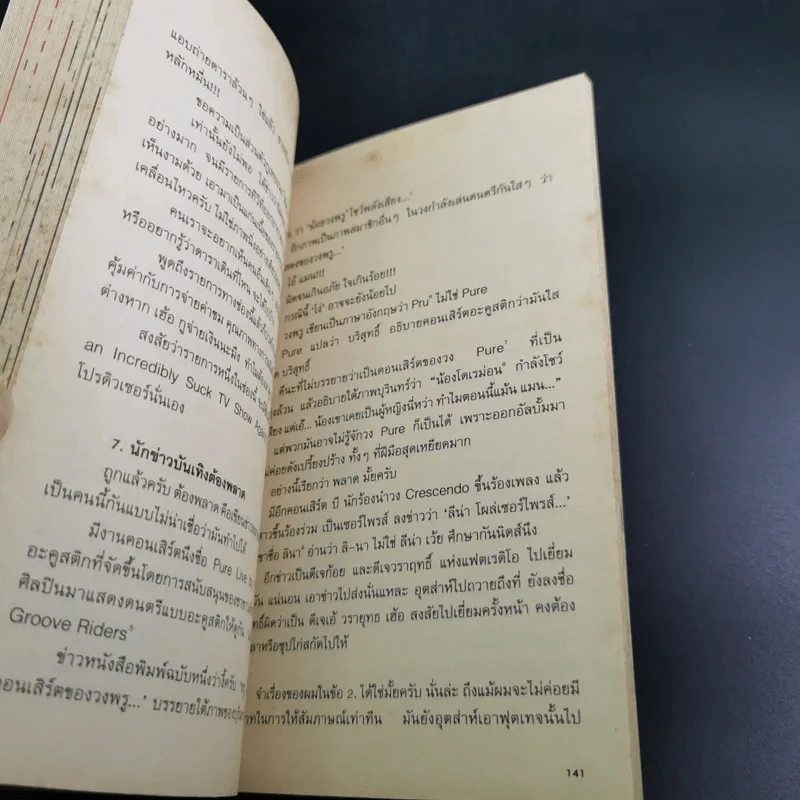 แอบถ่ายดาราล้วนๆ ใช่แล้ว
หลักหมื่น!!!
ขอความเป็นส่วนตัว
เท่านั้นยังไม่พอ
อย่างมาก จนมีรายการทีวี
เห็นงามด้วย เอามาเป็นแก่น
เคลื่อนไหวครับ ไม่ใช่ภาพนิ่งอย่าง
คนเราจะอยากเห็นคนอื่น
หรืออยากรู้ว่าดาราเดินที่ไหน จะได้
พูดถึงรายการทางช่องนี้แล้ว
คุ้มค่ากับการจ่ายค่าชม คุณภาพทาง
ต่างหาก เฮ้อ กูจ่ายเงินนะมึง ทำไม
สงสัยว่ารายการหนึ่งในช่องนี้
an Incredibly Suck TV Show Again
โปรดิวเซอร์นั่นเอง
7. นักข่าวบันเทิงต้องพลาด
ถูกแล้วครับ ต้องพลาด คือเขียนข่าว
เป็นคนนี้กันแบบไม่น่าเชื่อว่ามันทำไปได้
มีงานคอนเสิร์ตนึงชื่อ Pure Live
อะคูสติกที่จัดขึ้นโดยการสนับสนุนของ
ศิลปินมาแสดงดนตรีแบบอะคูสติกให้ดูกัน
Groove Riders⁵
ข่าวหนังสือพิมพ์ฉบับหนึ่งว่างี้ครับ
คอนเสิร์ตของวงพรู...' บรรยายใต้ภาพของ
ว่า 'น้อยวงพรู' โชว์พลังเสียง...'
อีกภาพเป็นภาพสมาชิกอื่นๆ ในวงกำลังเล่นดนตรีกันใสๆ ว่า
แสดงของวงพรู...'
โอ้ แมน!!!
ผิดจนเกินอภัย ใจเกินร้อย!!!
กรณีนี้ 'โง่' อาจจะยังน้อยไป
วงพรู เขียนเป็นภาษาอังกฤษว่า Pru⁶ ไม่ใช่ Pure
Pure แปลว่า บริสุทธิ์ อธิบายคอนเสิร์ตอะคูสติกว่ามันใส
บริสุทธิ์
ดีนะที่ไม่บรรยายว่าเป็นคอนเสิร์ตของวง Pure⁷ ที่เป็น
ล้วน แล้วอธิบายใต้ภาพบุรินทร์ว่า "น้องโดเรม่อน" กำลังโชว์
เสียง แต่เอ๊... น้องเขาเคยเป็นผู้หญิงนี่หว่า ทำไมตอนนี้แม้น แมน..."
แต่พวกมันอาจไม่รู้จักวง Pure ก็เป็นได้ เพราะออกอัลบั้มมา
ไม่ค่อยดังเปรี้ยงปร้าง ทั้งๆ ที่ฝีมือสุดเหยียดมาก
อย่างนี้เรียกว่า พลาด มั้ยครับ
มีอีกคอนเสิร์ต บี นักร้องนำวง Crescendo ขึ้นร้องเพลง แล้ว
สาวขึ้นร้องร่วม เป็นเซอร์ไพรส์ ลงข่าวว่า 'ลีน่า โผล่เซอร์ไพรส์...'
เขาชื่อ ลินา⁸ อ่านว่า ลิ-นา ไม่ใช่ ลีน่า เว้ย ศึกษากันนิดส์นึง
อีกข่าวเป็นดีเจก้อย และดีเจวราฤทธิ์ แห่งแฟตเรดิโอ ไปเยี่ยม
แน่นอน เอาข่าวไปส่งนั่นแหละ อุตส่าห์ไปถวายถึงที่ ยังลงชื่อ
ผิดว่าเป็น ดีเจเอ้ วรายุทธ เฮ้อ สงสัยไปเยี่ยมครั้งหน้า คงต้อง
ปลาหรือซุปไก่สกัดไปให้
จำเรื่องของผมในข้อ 2. ได้ใช่มั้ยครับ นั่นล่ะ ถึงแม้ผมจะไม่ค่อยมี
ในการให้สัมภาษณ์เท่าทีน มันยังอุตส่าห์เอาฟุตเทจนั้นไป
141